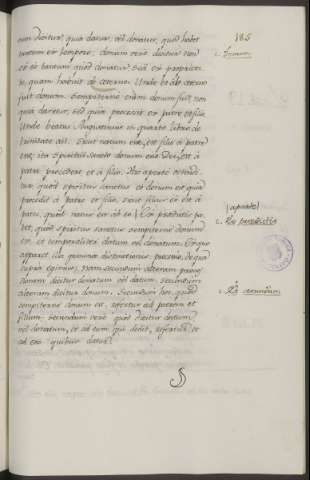 enim dicitur, quia datur vel donatur, quod habet
tantum ex tempore; donum vero dicitur non
ex eo tantum quod donatur sed ex proprieta
te, quam habuit ab eterno. Unde et ab eterno
fuit donum. Sempiterne enim donum fuit, non
quia daretur, sed quia processit ex patre et filio.
Unde beatus Augustinus in quarto libro de
trinitate ait. Sicut natum esse, est filio a patre
esse; ita Spiritui Sancto donum esse Dei, est a
patre procedere et a filio. Hic aperte ostendi-
tur quod spiritus sanctus eo donum est quia
procedit a patre et filio, sicut filius eo est a
patre, quod natus est ab eo. Ex predictis pa-
tet, quod spiritus sanctus sempiterne donum
est, et temporaliter datum vel donatum. Ex quo
apparet illa gemina distinctionis processio, de qua
supra egimus, Nam secundum alteram proces-
sionem dicitur donatum vel datum, secundum
alteram dicitur donum. Secundum hoc, quod
sempiterne donum est, refertur ad patrem et
filium: secundum vero quod dicitur datum
vel donatum, et ad eum qui dedit, refertur, et
ad eos quibus datur.
185
(aperte)
Ex predictis